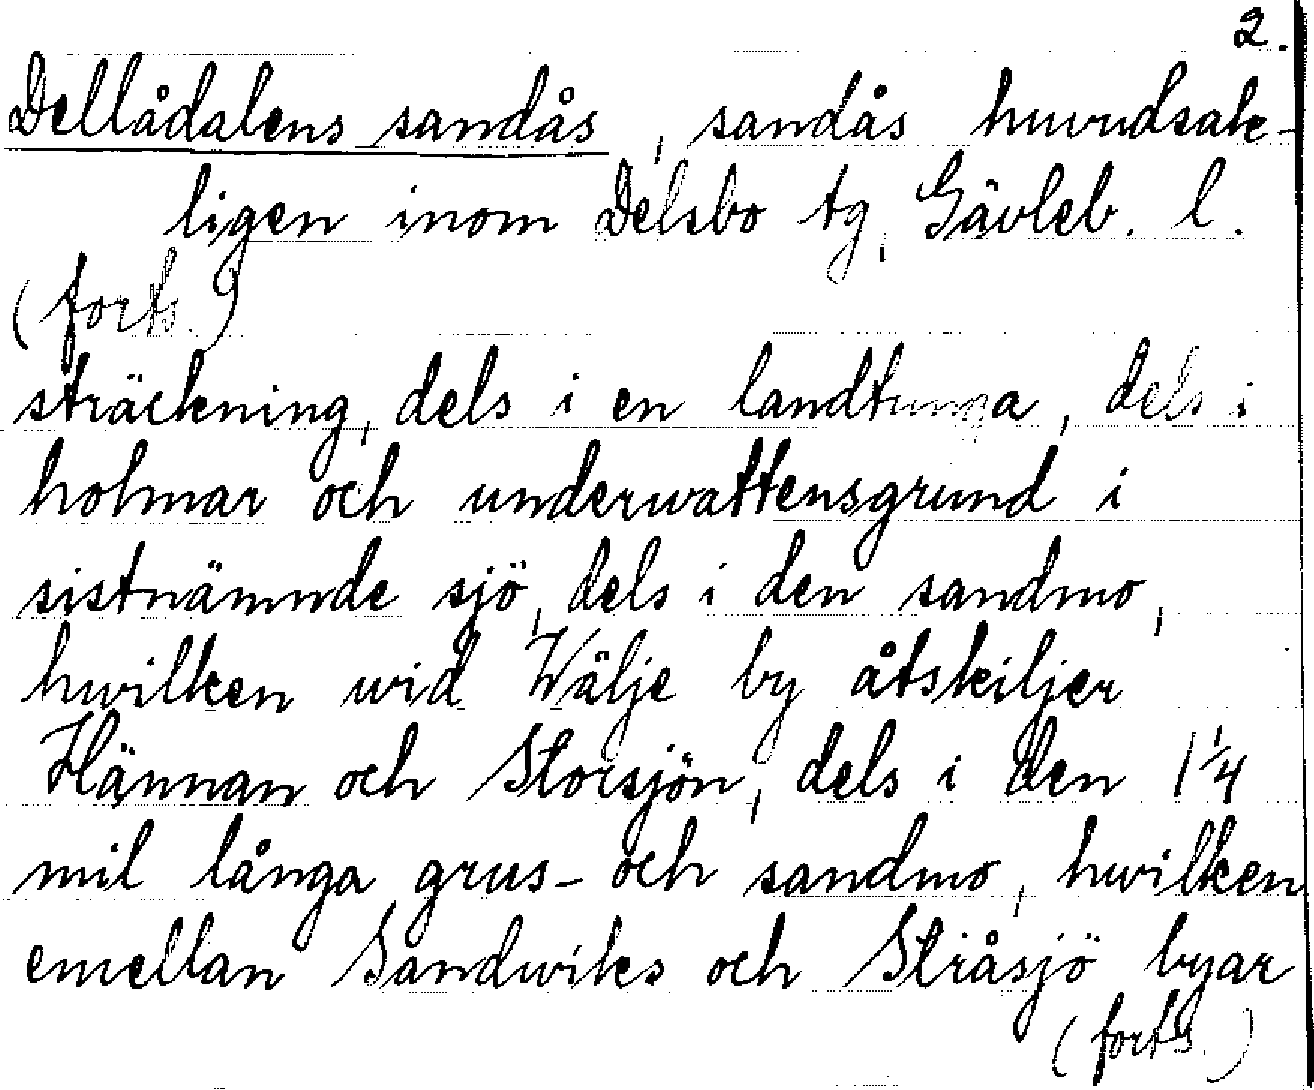 2.
Dellådalens sandås, sandås huvudsak-
ligen inom Delsbo tg, Gävleb. l.
(forts.)
sträckning, dels i en landtunga, dels i
holmar och underwattensgrund i
sistnämnde sjö, dels i den sandmo,
hwilken wid Wälje by åtskiljer
Hännan och Storsjön, dels i den 1 1/4
mil långa grus- och sandmo, hwilken
emellan Sandwiks och Stråsjö byar
(forts.)